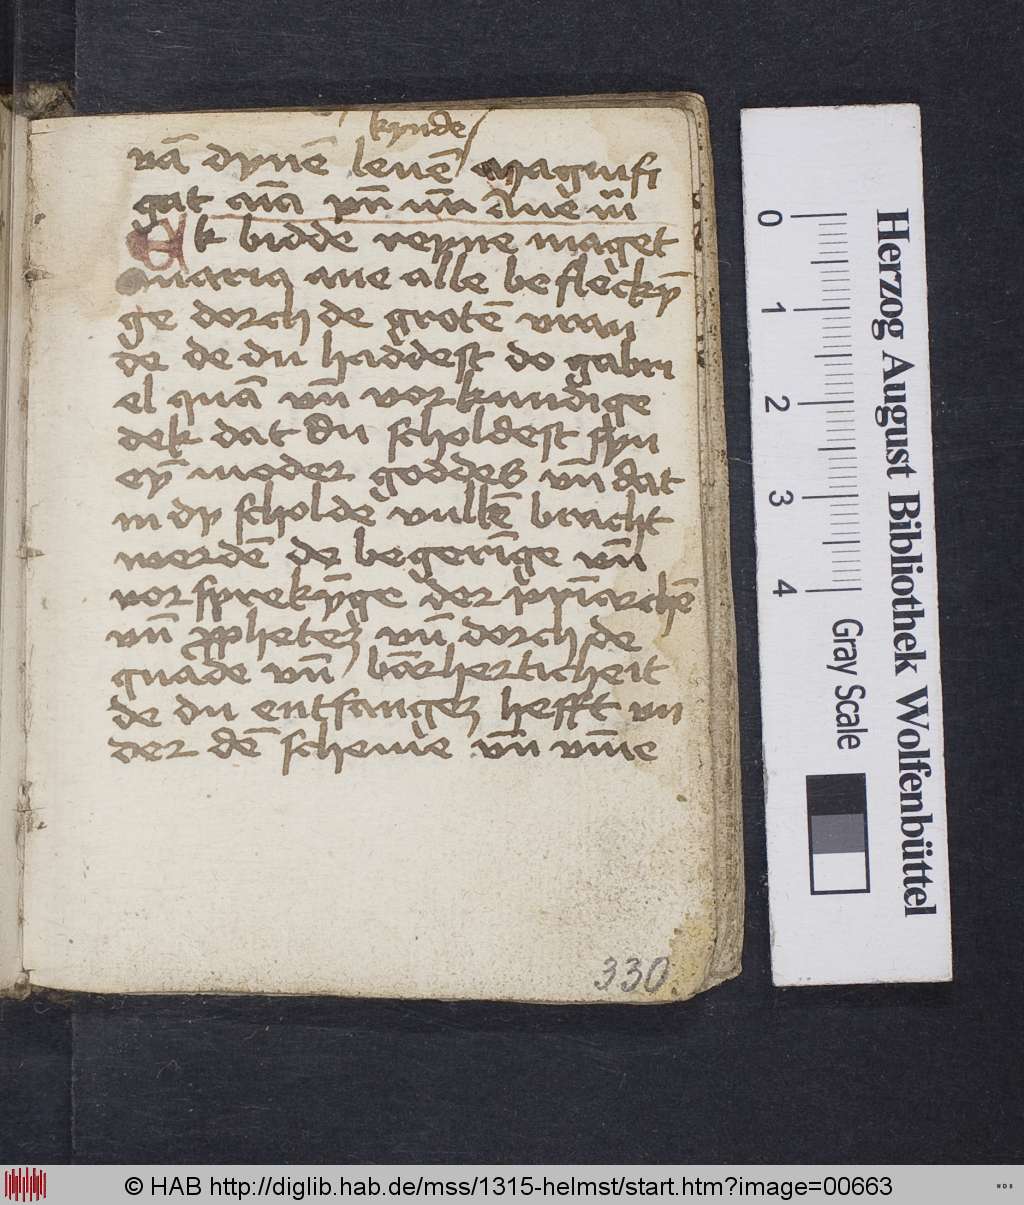 kynde
vā dynē leuē magnifi
gat aīa vn̄ nu̅n Aue m̄
Ek bidde reyne maget
maria ane alle beflecky̅
ge dorch de grotē vrau
de de du haddest do gabri
el quā vn̄ vorkundige
dek dat du scholdest syn
ey̅ moder goddes vn̄ dat
in dy scholde vullē bracht
werdē de begeri̅ge vn̄
vorspreky̅ge der pr̄iarchē
vn̄ ꝓpheteȝ vn̄ dorch de
gnade vn̄ bār herticheit
de du entfangeȝ hefft vn
der dē scheme vn̄ vm̄e
330
Herzog August Bibliothek Wolfenbüttel
0 1 2 3 4 Gray Scale
© HAB http://diglib.hab.de/mss/1315-helmst/start.htm?image=00663